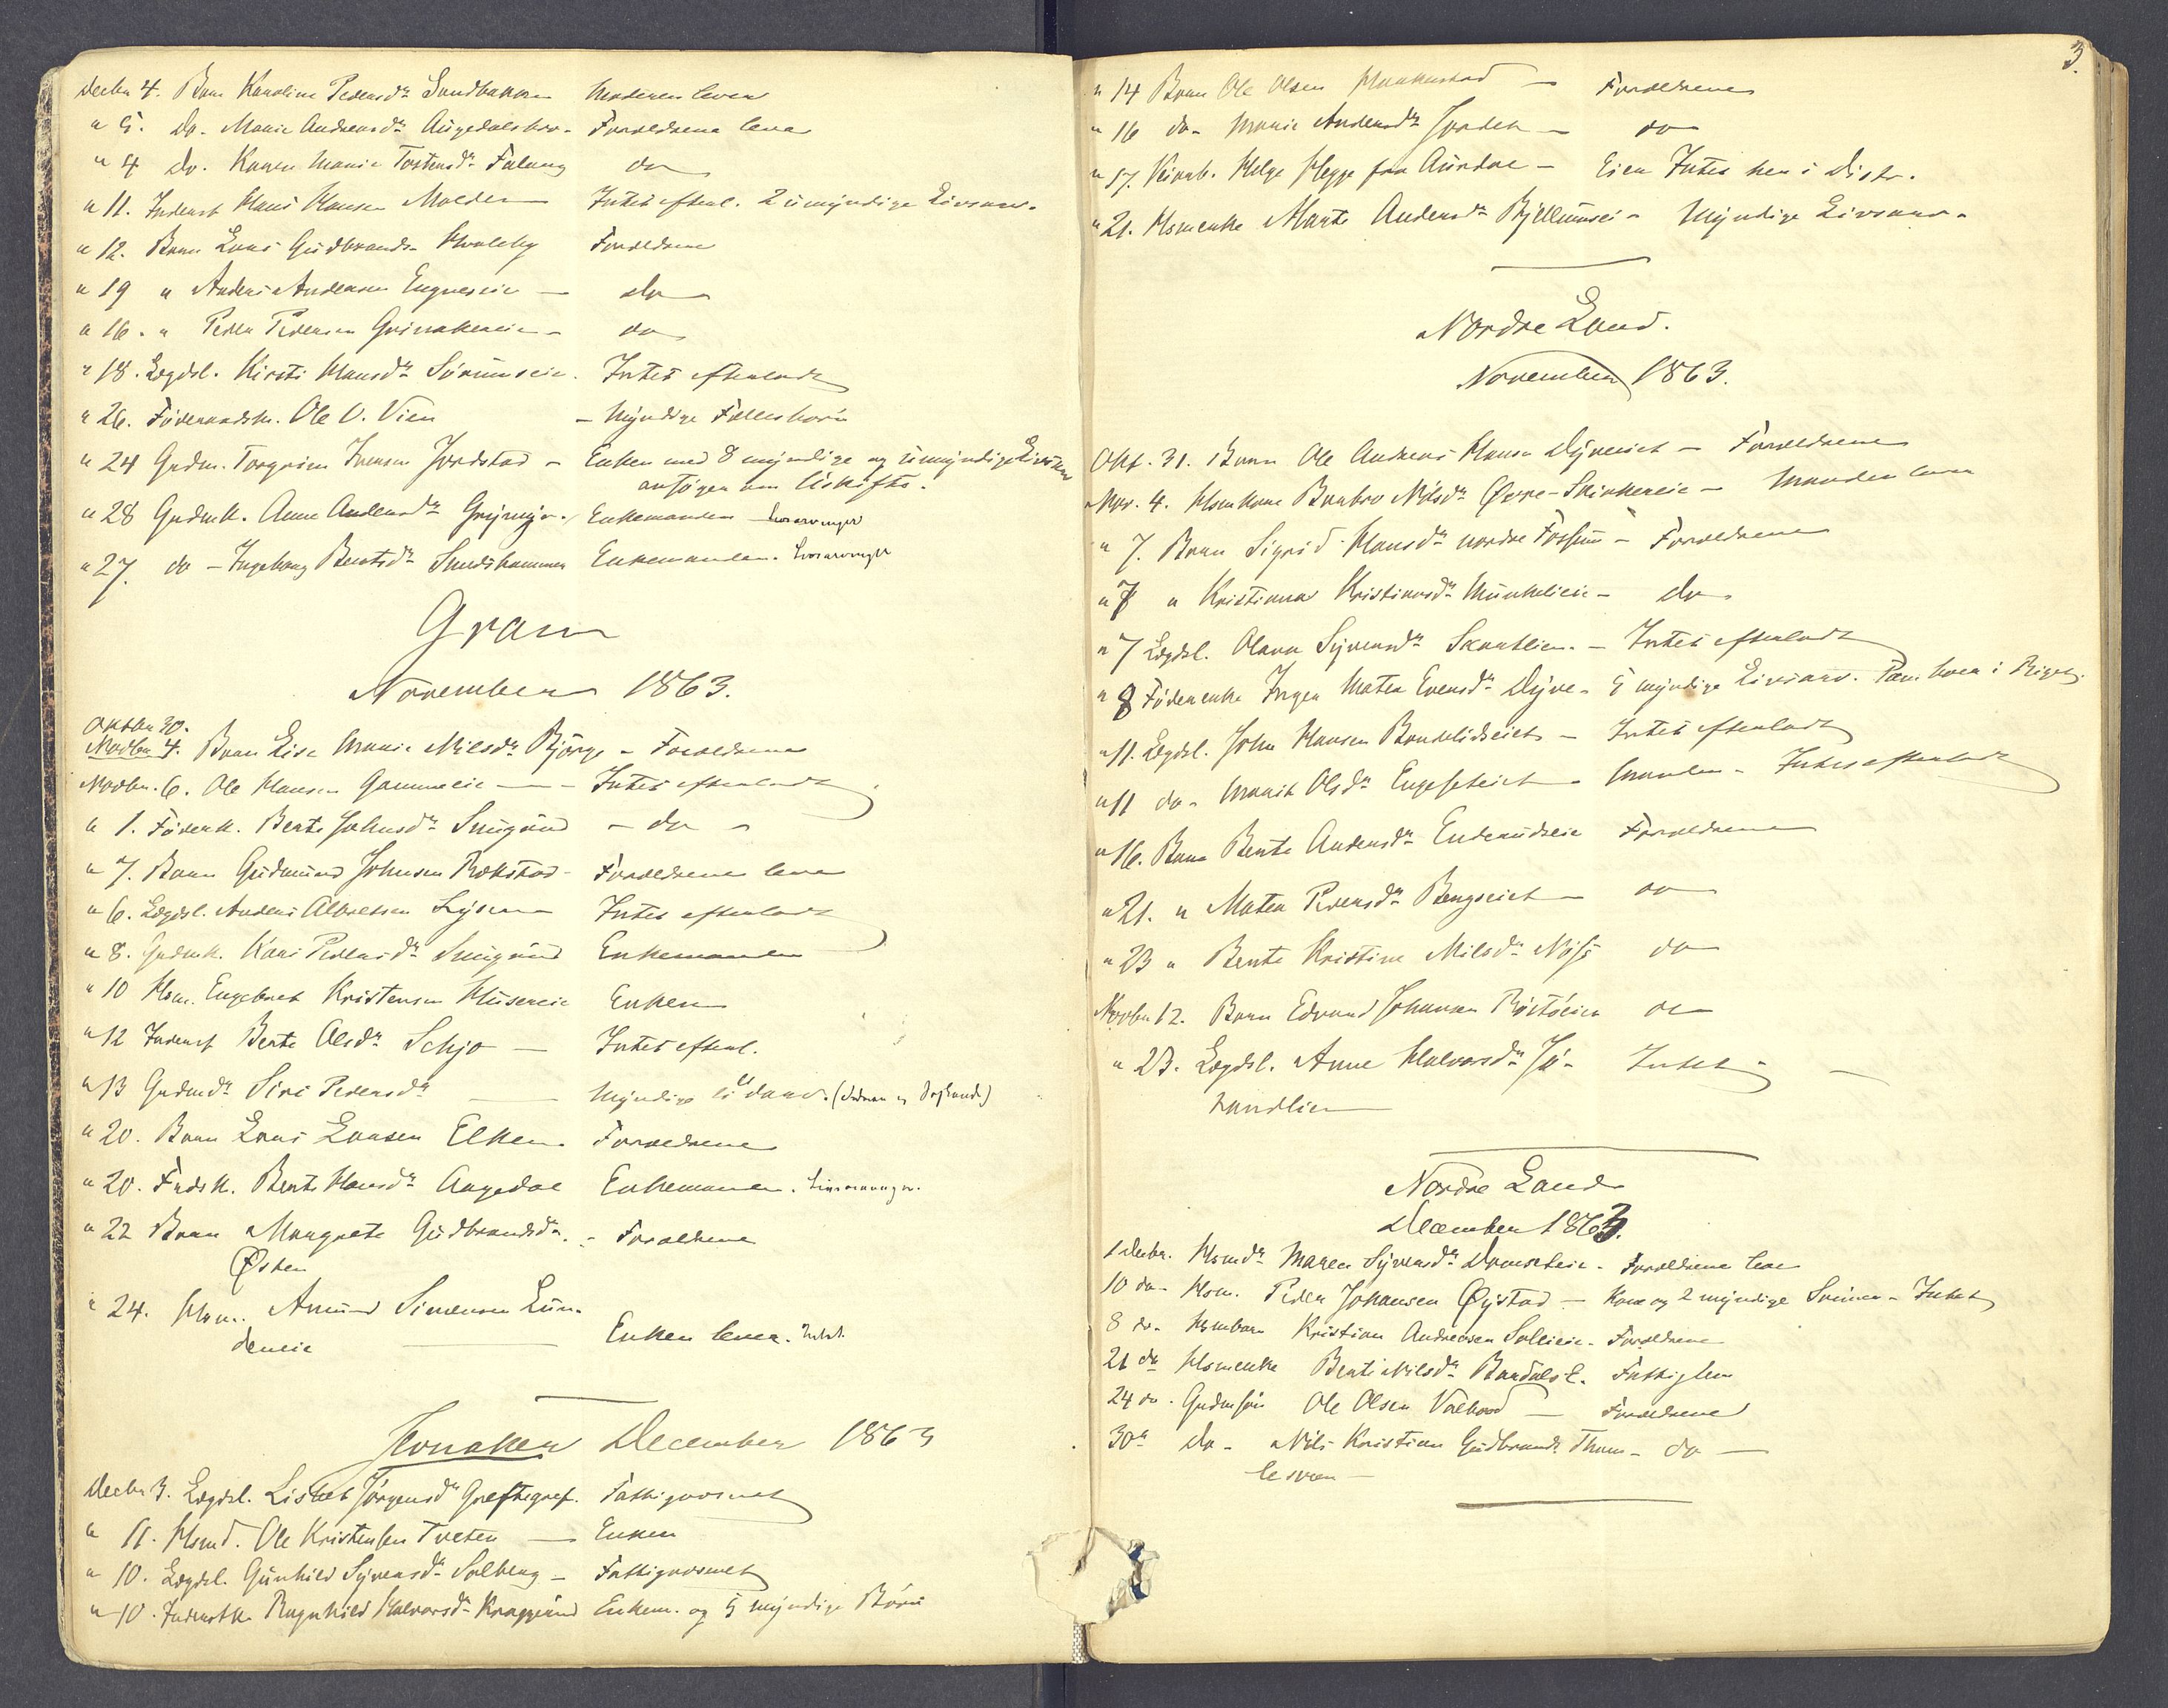 Decbr 4. Barn Karoline Pedersdr Sandbakken Moderen lever
" 5. do. Marie Andersdr Augedalsbro- Forældrene leve
" 4 do. Karen Marie Torstensdr Falang do
" 11. Inderst Hans Hansen Molden Intet efterl. 2 umyndige Livsarv.
" 12. Barn Lars Gudbrands. Hvaleby Forældrene
" 19 " Anders Andersen Engneseie — do
" 16. " Peder Pedersen Grinakereie - do
" 18. Lægdsl. Kirsti Hansd. Sørumseie. Intet efterladt
" 26. Føderaadsm. Ole O. Vien - Myndige Fællesbørn
" 24 Grdm. Torgrim Iversen Jordstad - Enken med 8 myndige og umyndige Livsarv
ansøger om Uskifte.
" 28 Grdmk. Anne Andersdr Grymyr. Enkemanden Livsarvinger
" 27. do - Ingeborg Berntsdr Smedshammer Enkemanden. Livsarvinger
Gran
November 1863.
Oktbr 30.
Novbr 4. Barn Lise Marie Nilsdr Bjørge - Forældrene
Novbr. 6. Ole Hansen Gammeeie — Intet efterladt
" 1. Føderk. Berte Johnsdr Smigrud - do -
" 7. Barn Gudmund Johnsen Rækstad - Forældrene leve
" 6. Lægdsl. Anders Albretsen Lysen Intet efterladt
" 8. Grdmk. Kari Pedersdr Smigrud Enkemanden
" 10 Hsm. Engebret Kristensen Husereie Enken
" 12 Inderst Berte Olsdr Schjo — Intet efterl.
" 13 Grdmdr Siri Pedersdr — Myndige Udarv.
" 20. Barn Lars Larsen Elken. Forældrene
" 20. Frdsk. Berte Hansdr Augedal Enkemanden. Livsarvinger.
" 22 Barn Margrete Gudbrandsdr. - Forældrene
Østen
" 24. Hsm. Amund Simensen Lun-
deneie — Enken lever. Intet.
Jevnaker December 1863
Decbr 3. Lægdsl. Lisbet Jørgensdr Greftegref. Fattigvæsnet
" 11. Hsmd. Ole Kristensen Tveten — Enken
" 10. Lægdsl. Gunhild Syversdr Solberg - Fattigvæsnet
" 10. Inderstk. Ragnhild Halvorsdr Kraggerud Enkem. og 5 myndige Børn
3.
" 14 Barn Ole Olsen Haakenstad — Forældrene
" 16 do- Marie Andersdr Jorden - do
" 17. Helge Hegge fra Aurdal - Eier Intet her i Distr.
" 21. Hsmenke Marte Andersdr Bjellumsei - Myndige Livsarv.
Nordre Land.
November 1863.
Okt. 31. Barn Ole Andreas Hansen Dyreeiet - Forældrene
Nov. 4. Hsmkone Barbro Nilsdr Øvre-Skinkereie - Manden lever
" 7. Barn Sigrid Hansdr nordre Fossum - Forældrene
" 7 " Kristiana Kristiansdr Munkelieie - do
" 7 Lægdsl. Olava Syversdr Skartlien. - Intet efterladt
" 8 Føderenke Inger Matea Evensdr Dyve. 5 myndige Livsarv. Paa hver i Riget.
" 11. Lægdsl. John Hansen Brudelidseiet - Intet efterladt
" 11 do- Marit Olsdr Engeseteiet - Manden - Intet efterladt
" 16. Barn Berte Andersdr Enderudseie Forældrene
" 21. " Matea Pedersdr Bergseiet — do
" 23 " Berte Kristine Nilsdr Nøss do
Novbr 12. Barn Edvard Johansen Røstøeien do
" 23. Lægdsl. Anne Halvorsdr Ja- Intet —
randlien
Nordre Land
December 1863.
1 Decbr. Hsmdr Maren Syversdr Domseteie. Forældrene leve
10 do- Hsm. Peder Johansen Øystad - Kone og 2 myndige Sønner - Intet
8 do. Hsmbarn Kristian Andreasen Sollieeie. Forældrene
21 do Hsmenke Berte Nilsdr Bardals E. Fattiglem
24 do. Grdmsøn Ole Olsen Valhovd — Forældrene
30 " do- Nils Kristian Gudbrands. Thom- do —
lesveen